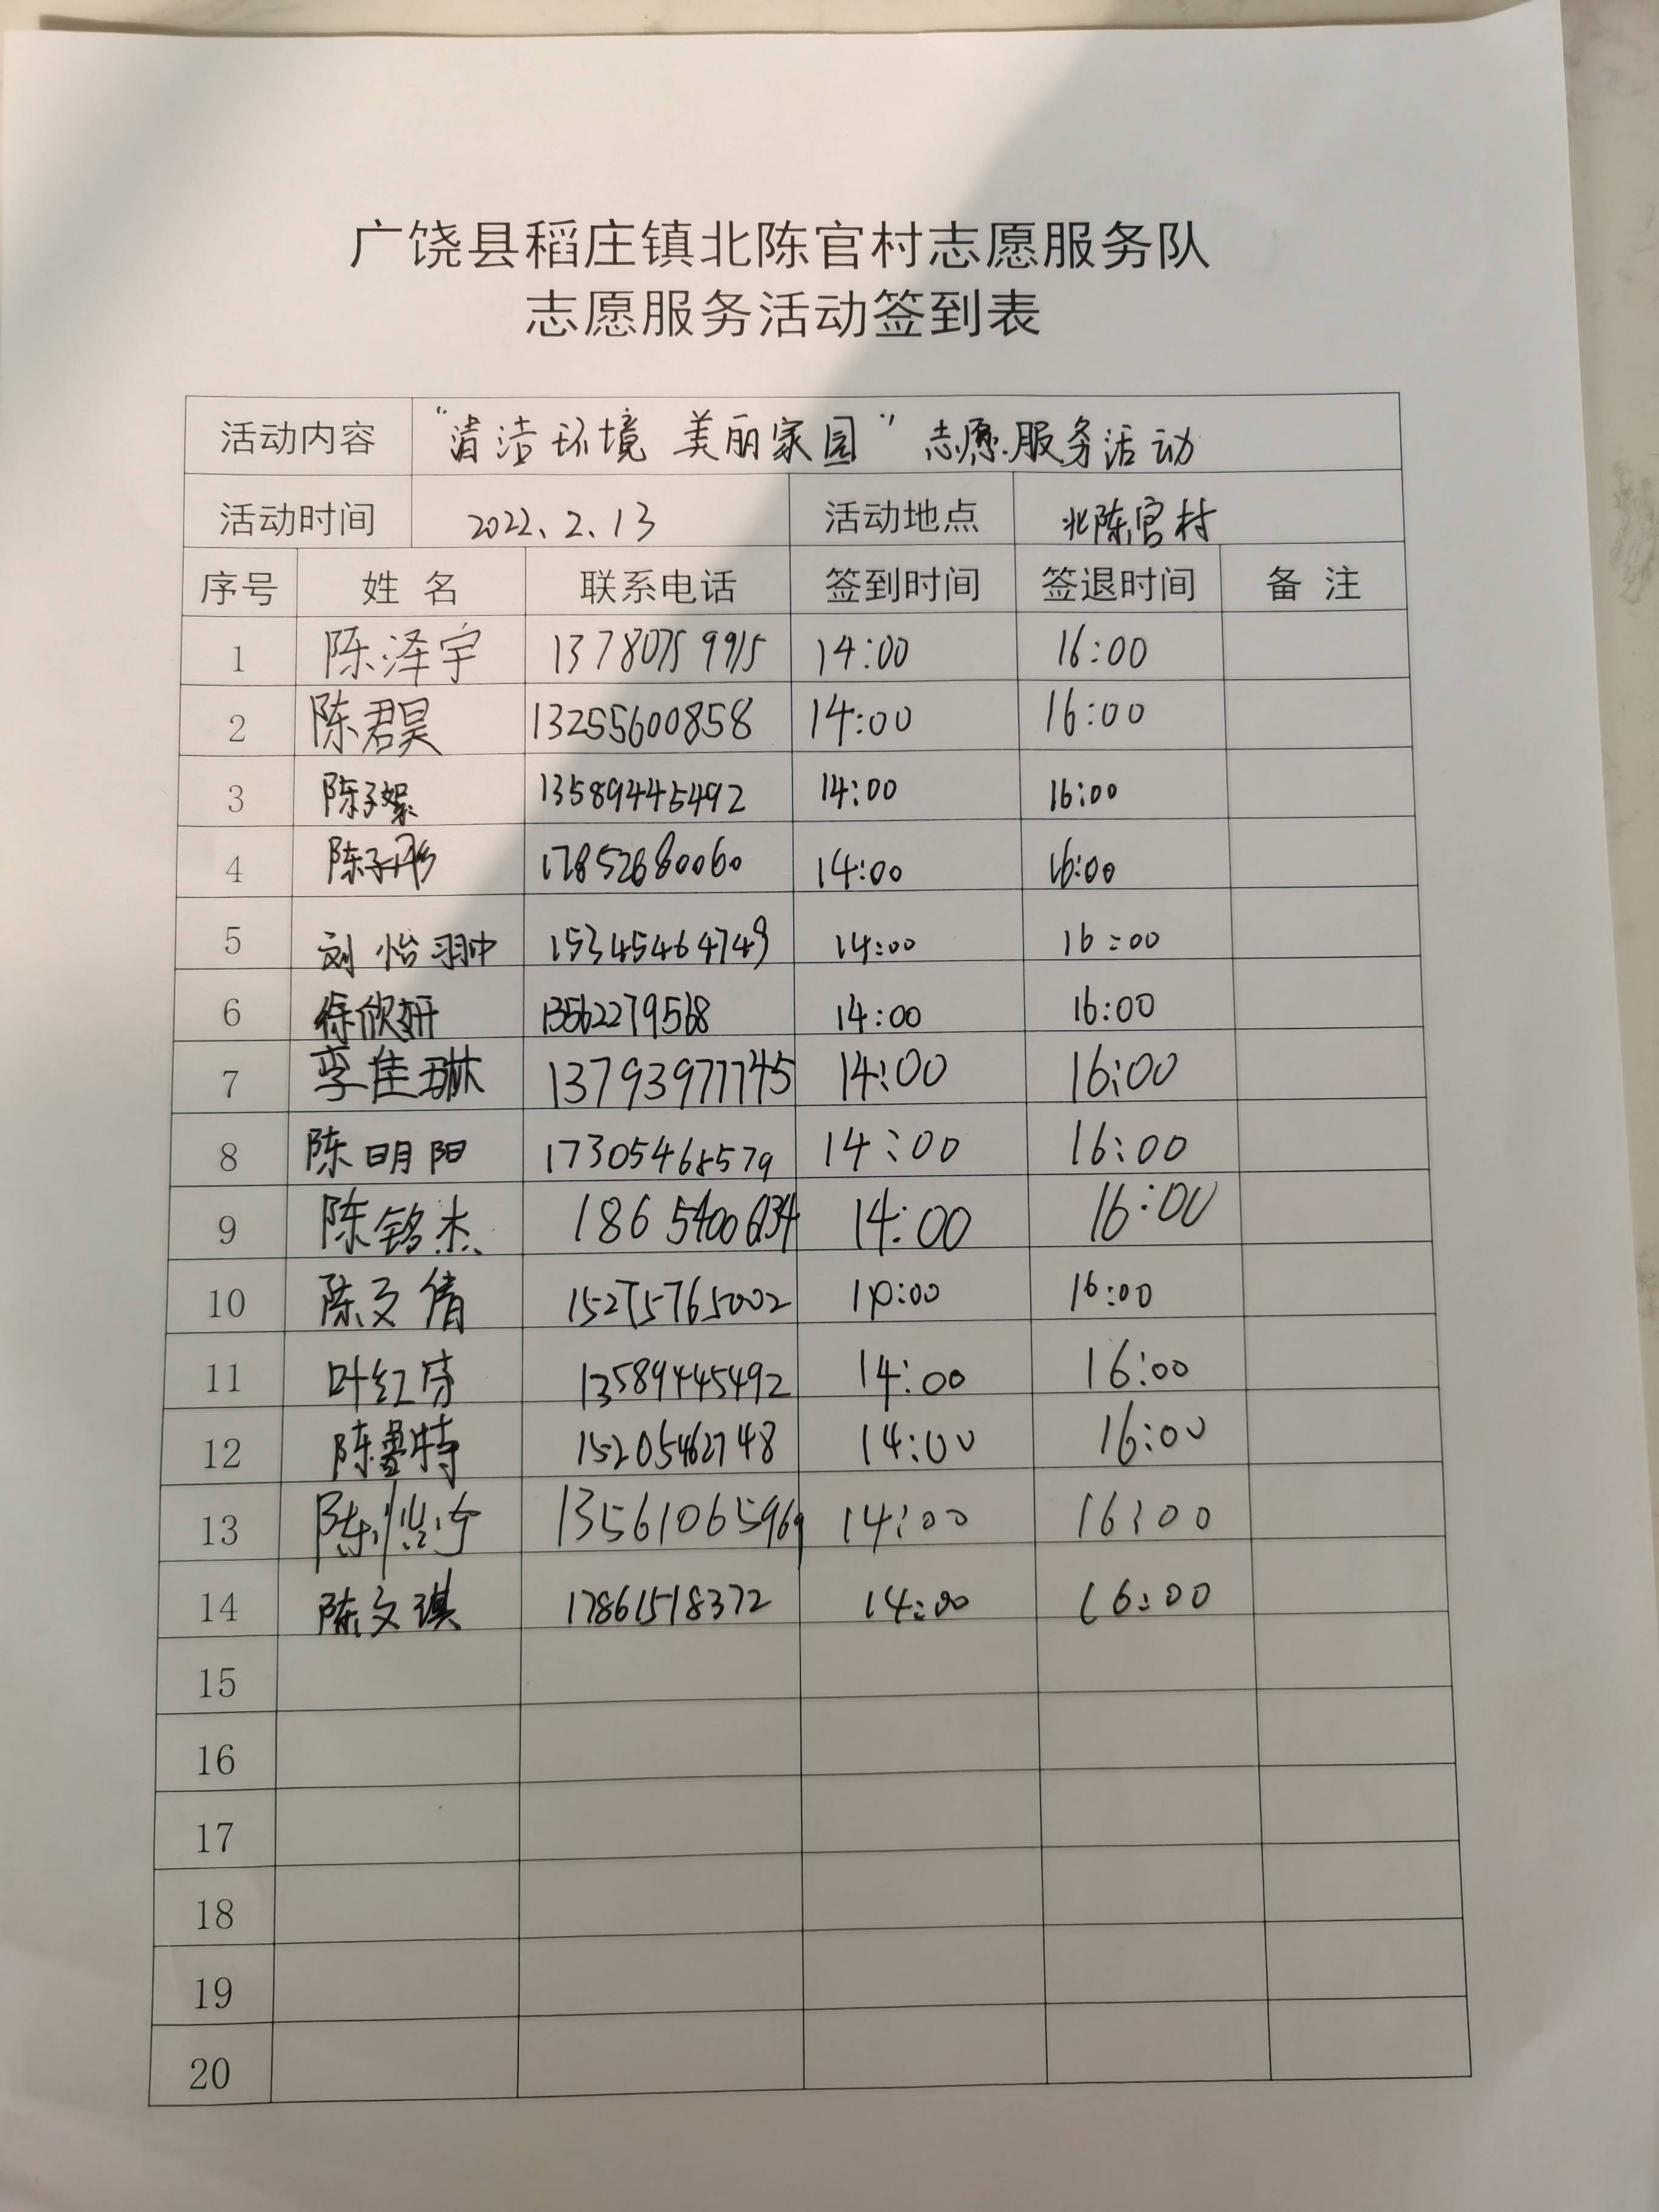 广饶县稻庄镇北陈官村志愿服务队
志愿服务活动签到表
活动内容 “清洁环境 美丽家园”志愿服务活动
活动时间 2022、2、13 活动地点 北陈官村
序号 姓 名 联系电话 签到时间 签退时间 备 注
1 陈泽宇 13780759915 14:00 16:00
2 陈君昊 13255600858 14:00 16:00
3 陈子絮 13589445492 14:00 16:00
4 陈子彤 17852680060 14:00 16:00
5 刘怡翀 15345464749 14:00 16:00
6 徐欣妍 13562279568 14:00 16:00
7 李佳琳 13793977745 14:00 16:00
8 陈明阳 17305468579 14:00 16:00
9 陈铭杰 18654006134 14:00 16:00
10 陈文倩 15275765002 14:00 16:00
11 叶红芳 13589445492 14:00 16:00
12 陈鲁特 15205462748 14:00 16:00
13 陈 13561065969 14:00 16:00
14 陈文琪 17861518372 14:00 16:00
15
16
17
18
19
20